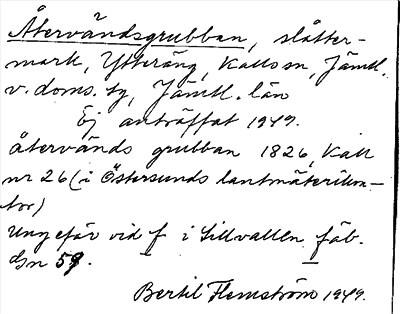 Återvändsgrubban, slåtter-
mark, Ytteräng, Kall sn, Jämtl.
v. doms. tg, Jämtl. län
Ej anträffat 1949.
återvänds grubban 1826, Kall
nr 26 (i Östersunds lantmäterikon-
tor)
Ungefär vid f i Sillvallen fäb.
Gn 59.
Bertil Flemström 1949.